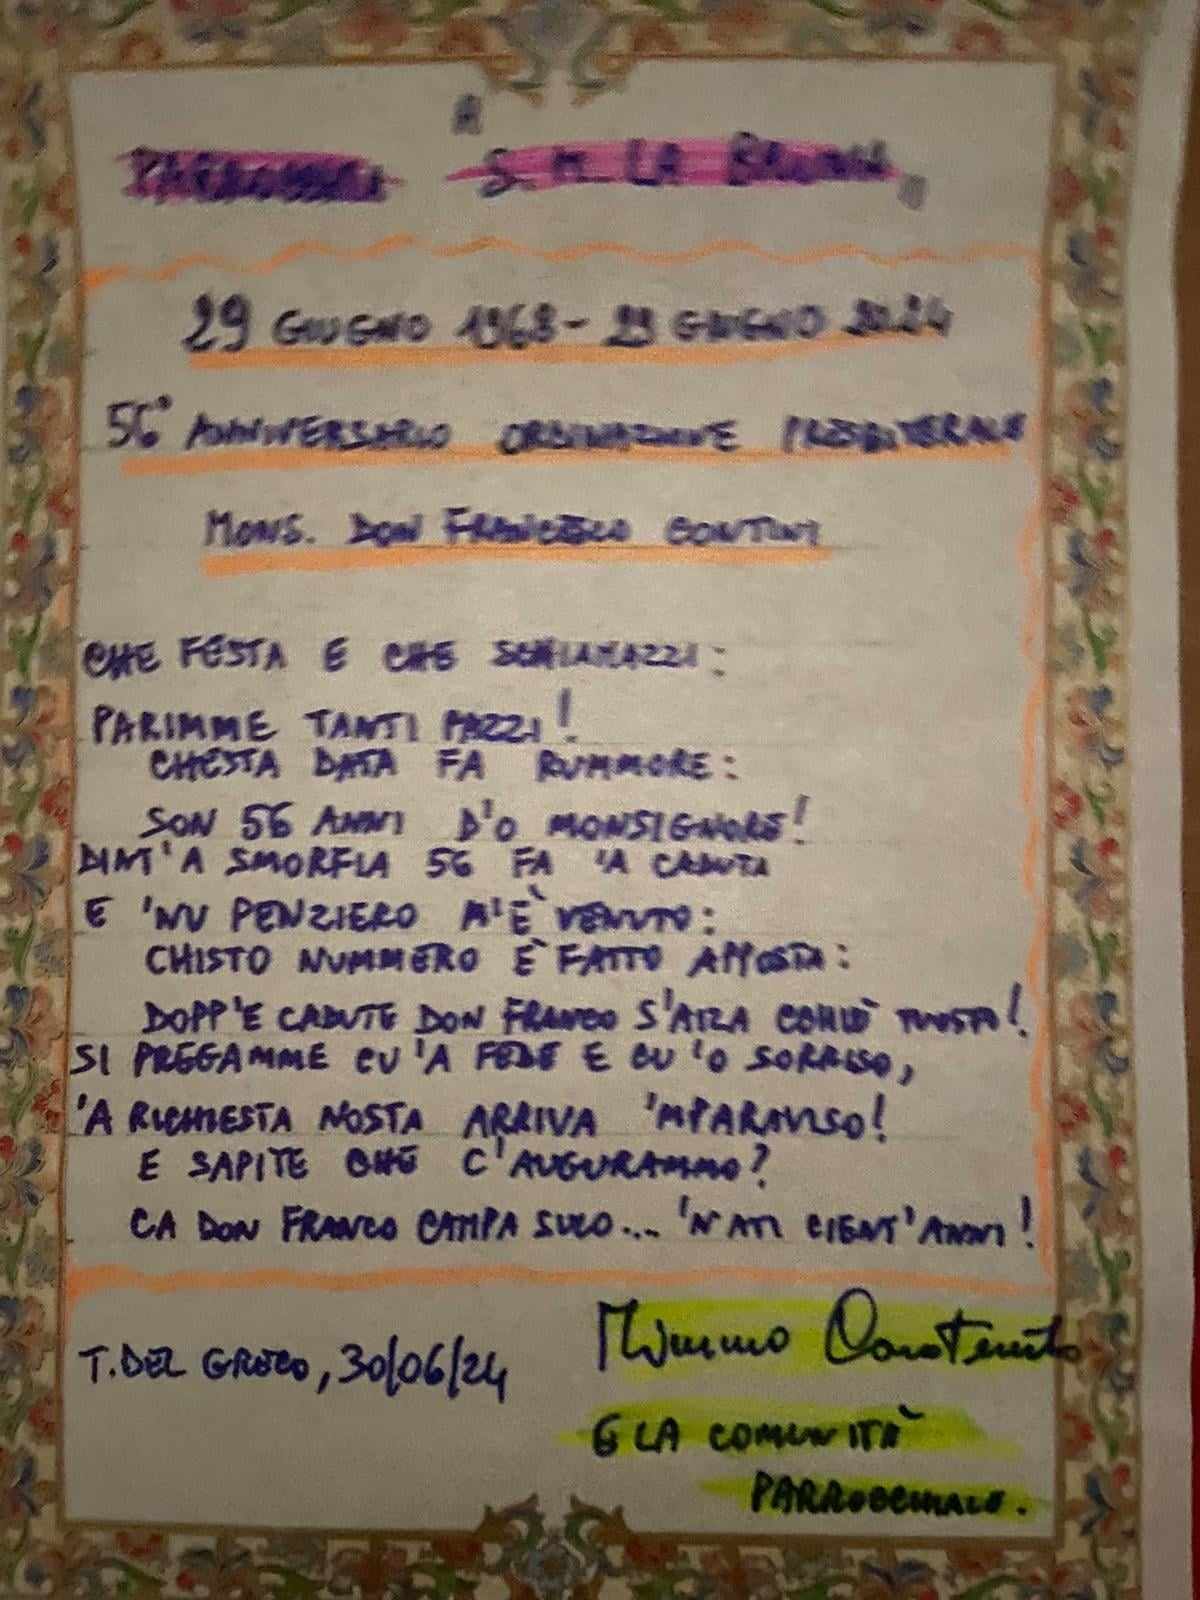 PARROCCHIA S. M. LA BRUNA
29 GIUGNO 1968 - 29 GIUGNO 2024
56° ANNIVERSARIO ORDINAZIONE PRESBITERALE
MONS. DON FRANCESCO CONTINI
CHE FESTA E CHE SCHIAMAZZI:
PARIMME TANTI PAZZI!
CHESTA DATA FA RUMMORE:
SON 56 ANNI D'O MONSIGNORE!
DINT'A SMORFIA 56 FA 'A CADUTA
E 'NU PENZIERO M'È VENUTO:
CHISTO NUMMERO È FATTO APPOSTA:
DOPP'E CADUTE DON FRANCO S'AIZA CCHIÙ TUOSTO!
SI PREGAMME CU 'A FEDE E CU 'O SORRISO,
'A RICHIESTA NOSTA ARRIVA 'MPARAVISO!
E SAPITE CHE C'AUGURAMMO?
CA DON FRANCO CAMPA SULO... 'N'ATI CIENT'ANNI!
T. DEL GRECO, 30/06/24
Mimmo
E LA COMUNITÀ
PARROCCHIALE.